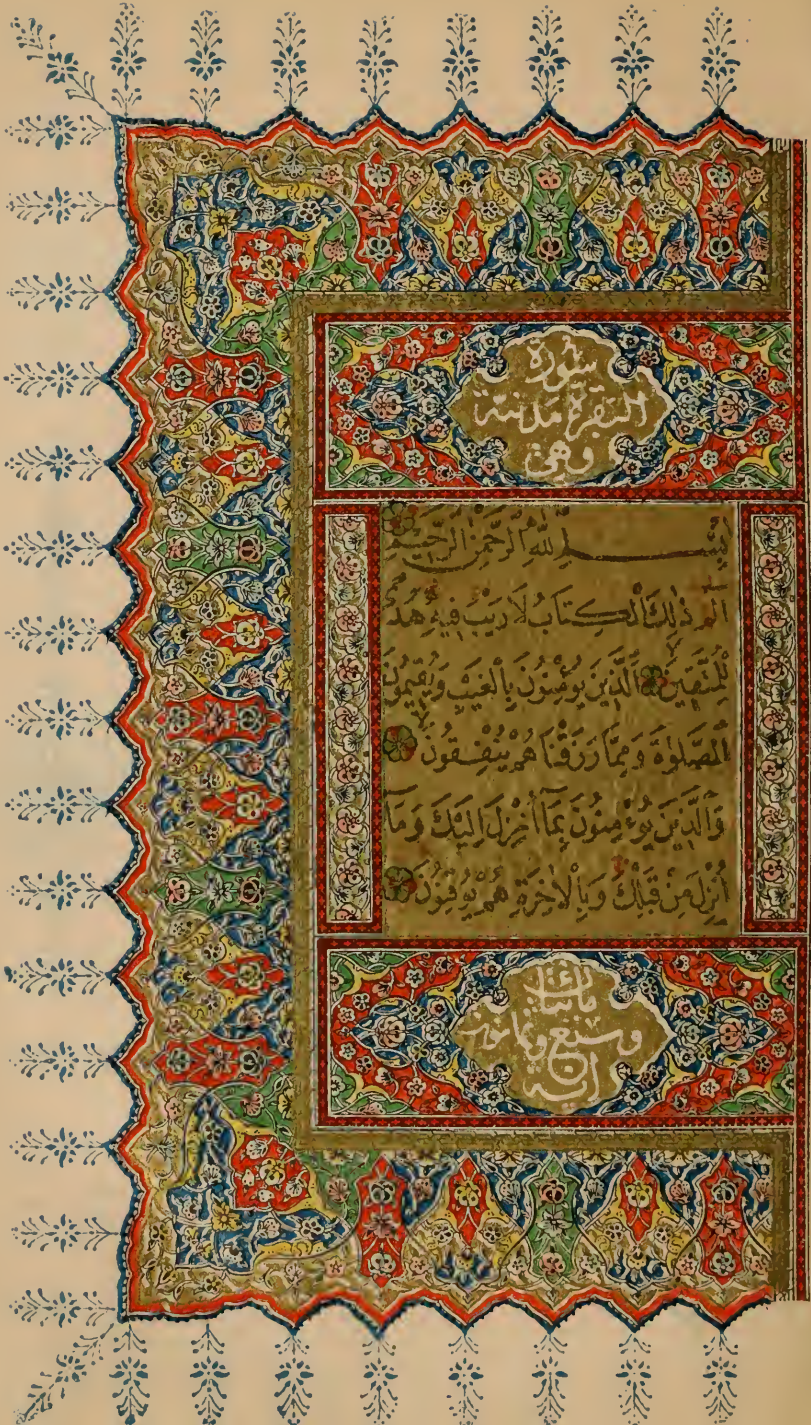 سُورَةُ
الْبَقَرَةِ مَدَنِيَّةٌ
وَهِيَ
بِسْمِ اللّٰهِ الرَّحْمٰنِ الرَّحِيمِ
الٓمٓ ذٰلِكَ الْكِتَابُ لَا رَيْبَ فِيهِ هُدًى
لِلْمُتَّقِينَ الَّذِينَ يُؤْمِنُونَ بِالْغَيْبِ وَيُقِيمُونَ
الصَّلٰوةَ وَمِمَّا رَزَقْنَا هُمْ يُنْفِقُونَ
وَالَّذِينَ يُؤْمِنُونَ بِمَا أُنْزِلَ اِلَيْكَ وَمَا
أُنْزِلَ مِنْ قَبْلِكَ وَبِالْاٰخِرَةِ هُمْ يُوقِنُونَ
مائتان
وسبع وثمانون
آية